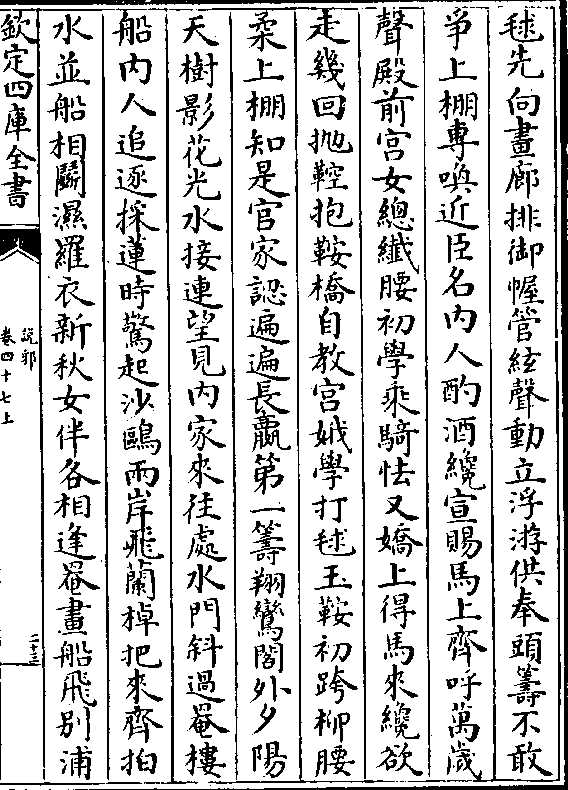 毬先向畫廊排御幄管絃聲動立浮游供奉頭籌不敢
爭上棚專喚近臣名内人酌酒纔宣賜馬上齊呼萬歲
聲殿前宫女總纖腰初學乗騎怯又嬌上得馬來纔欲
走幾回抛鞚抱鞍橋自教宫娥學打毬玉鞍初跨栁腰
柔上棚知是官家認遍遍長贏第一籌翔鸞閣外夕陽
天樹影花光水接連望見内家來往處水門斜過罨樓
船内人追逐採蓮時驚起沙鷗兩岸飛蘭棹把來齊拍
水並船相鬭濕羅衣新秋女伴各相逢罨畫船飛别浦
欽定四庫全書
說郛
卷四十七上
二十三